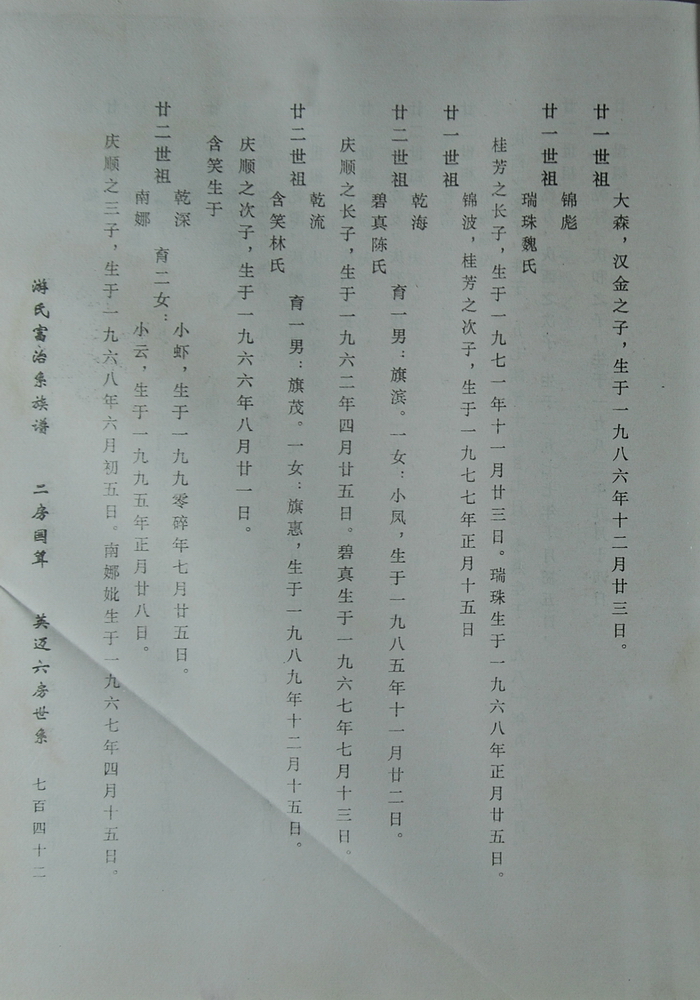 大森，汉金之子，生于一九八六年十二月廿三日。
廿一世祖
锦彪
廿一世祖
瑞珠魏氏
桂芳之长子，生于一九七一年十一月廿三日。瑞珠生于一九六八年正月廿五日。
锦波，桂芳之次子，生于一九七七年正月十五日
廿一世祖
乾海
廿二世祖
育一男：旗滨。一女：小凤，生于一九八五年十一月廿二日。
碧真陈氏
庆顺之长子，生于一九六二年四月廿五日。碧真生于一九六七年七月十三日。
乾流
廿二世祖
育一男：旗茂。一女：旗惠，生于一九八九年十二月十五日。
含笑林氏
庆顺之次子，生于一九六六年八月廿一日。
含笑生于
乾深
廿二世祖
育二女：
小虾，生于一九九零碎年七月廿五日。
小云，生于一九九五年正月廿八日。
南娜
庆顺之三子，生于一九六八年六月初五日。南娜妣生于一九六七年四月十五日。
游氏富治系族谱 二房国算 英迈六房世系 七百四十二